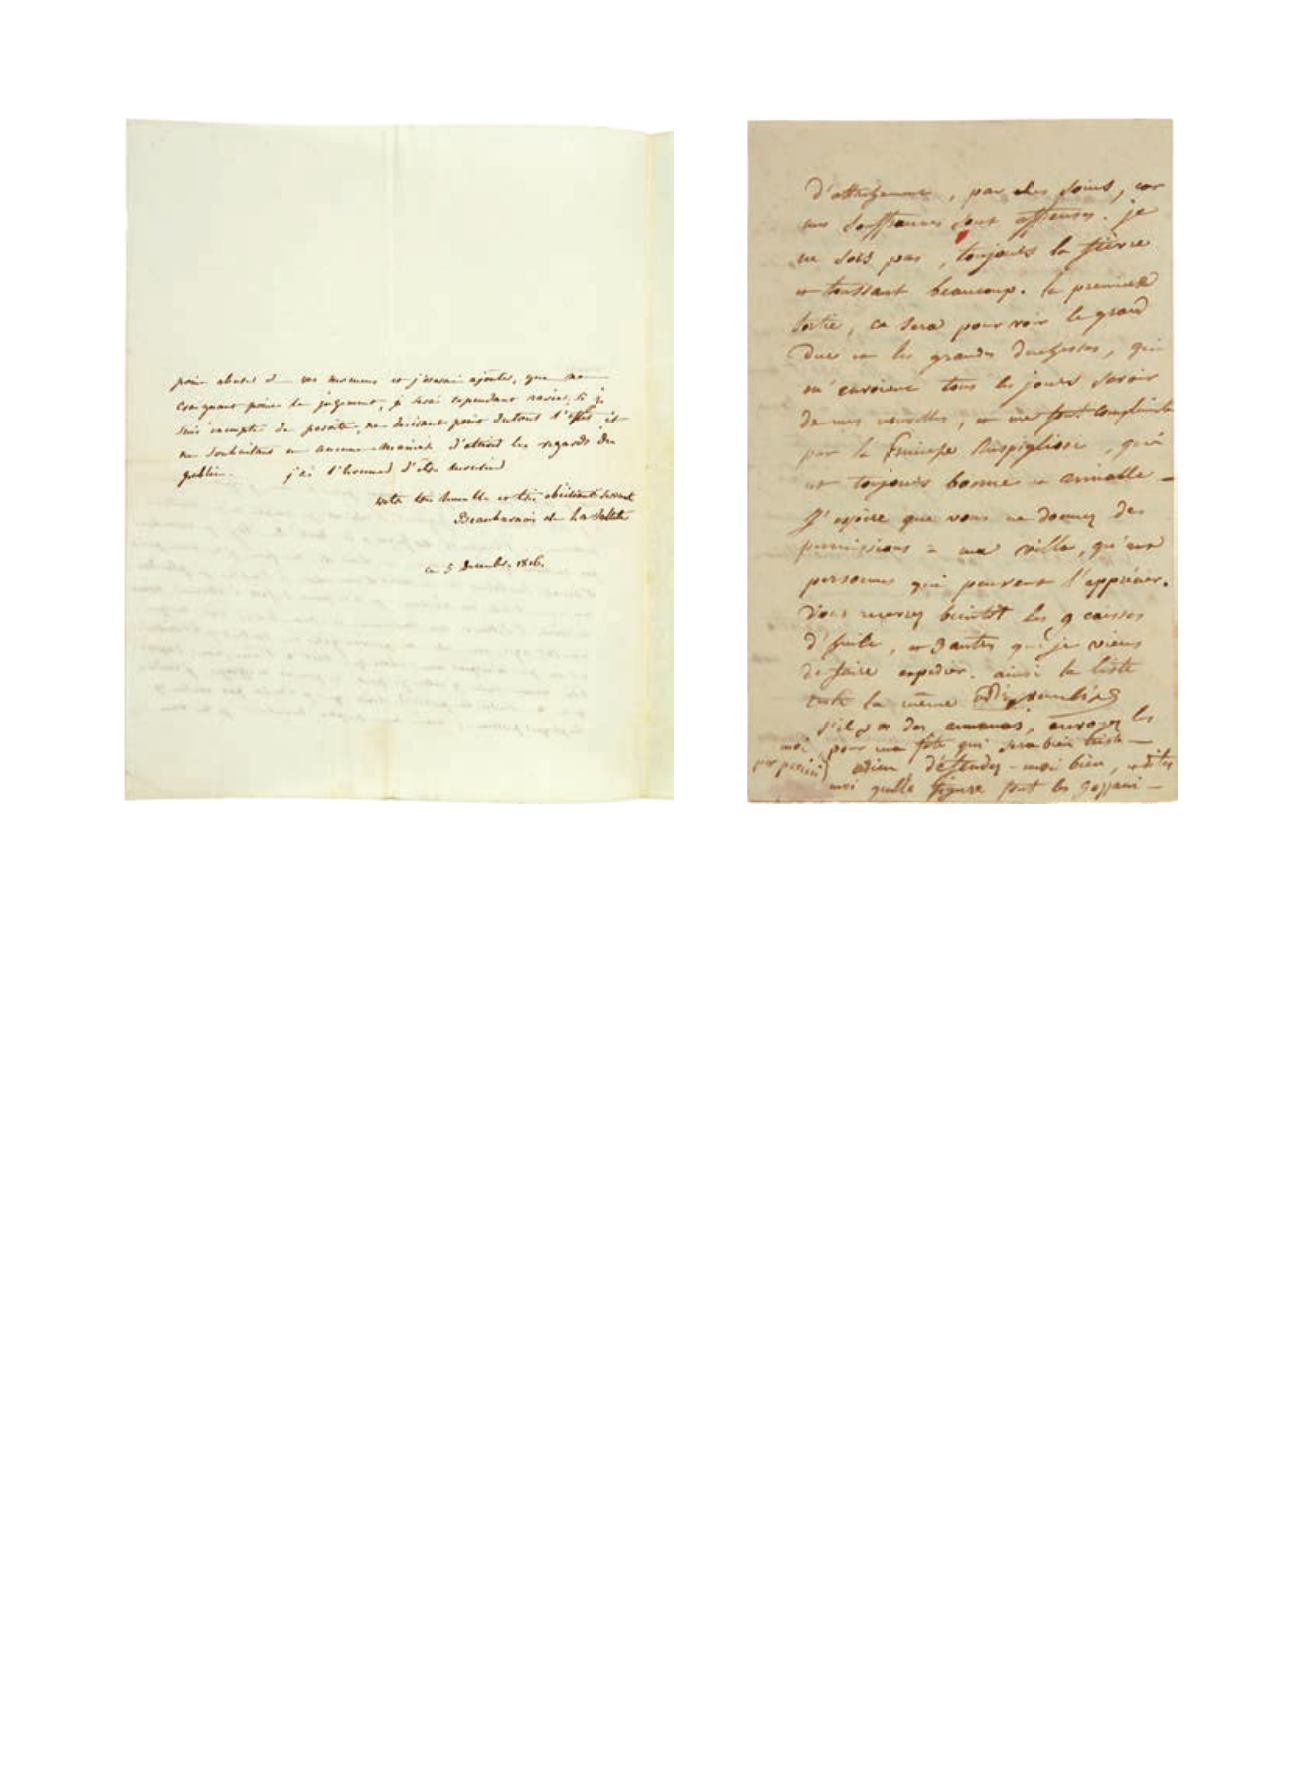 point abuser de vos momens et j'aurai ajouter, que ne
craignant point le jugement, je serai cependant ravie, si je
suis exempte de paraitre, ne desirant point du tout l'effet et
ne souhaitant en aucune maniere d'attirer les regards du
public. j'ai l'honneur d'être monsieur
votre très humble et très obéissante servante
Beauharnais de La Valette
ce 5 Decembre. 1816.
d'attachement, par des soins, car
mes souffrances sont affreuses. je
ne sors pas, toujours la fièvre
et toussant beaucoup. la premiere
sortie, ce sera pour voir le grand
Duc et les grandes duchesses, qui
m'envoient tous les jours savoir
de mes nouvelles, et me font complimenter
par le Principe Rospigliosi, qui
est toujours bonne et aimable —
J'espère que vous ne donnez des
permissions à ma villa, qu'aux
personnes qui peuvent l'apprécier.
Vous recevrez bientôt les 9 caisses
d' et 3 autres que je viens
de faire expédier. ainsi la liste
reste la même
s'il y a des ananas, envoyez les
moi pour ma fête qui sera bien triste —
adieu, défendez-moi bien, et dites
moi quelle figure font les